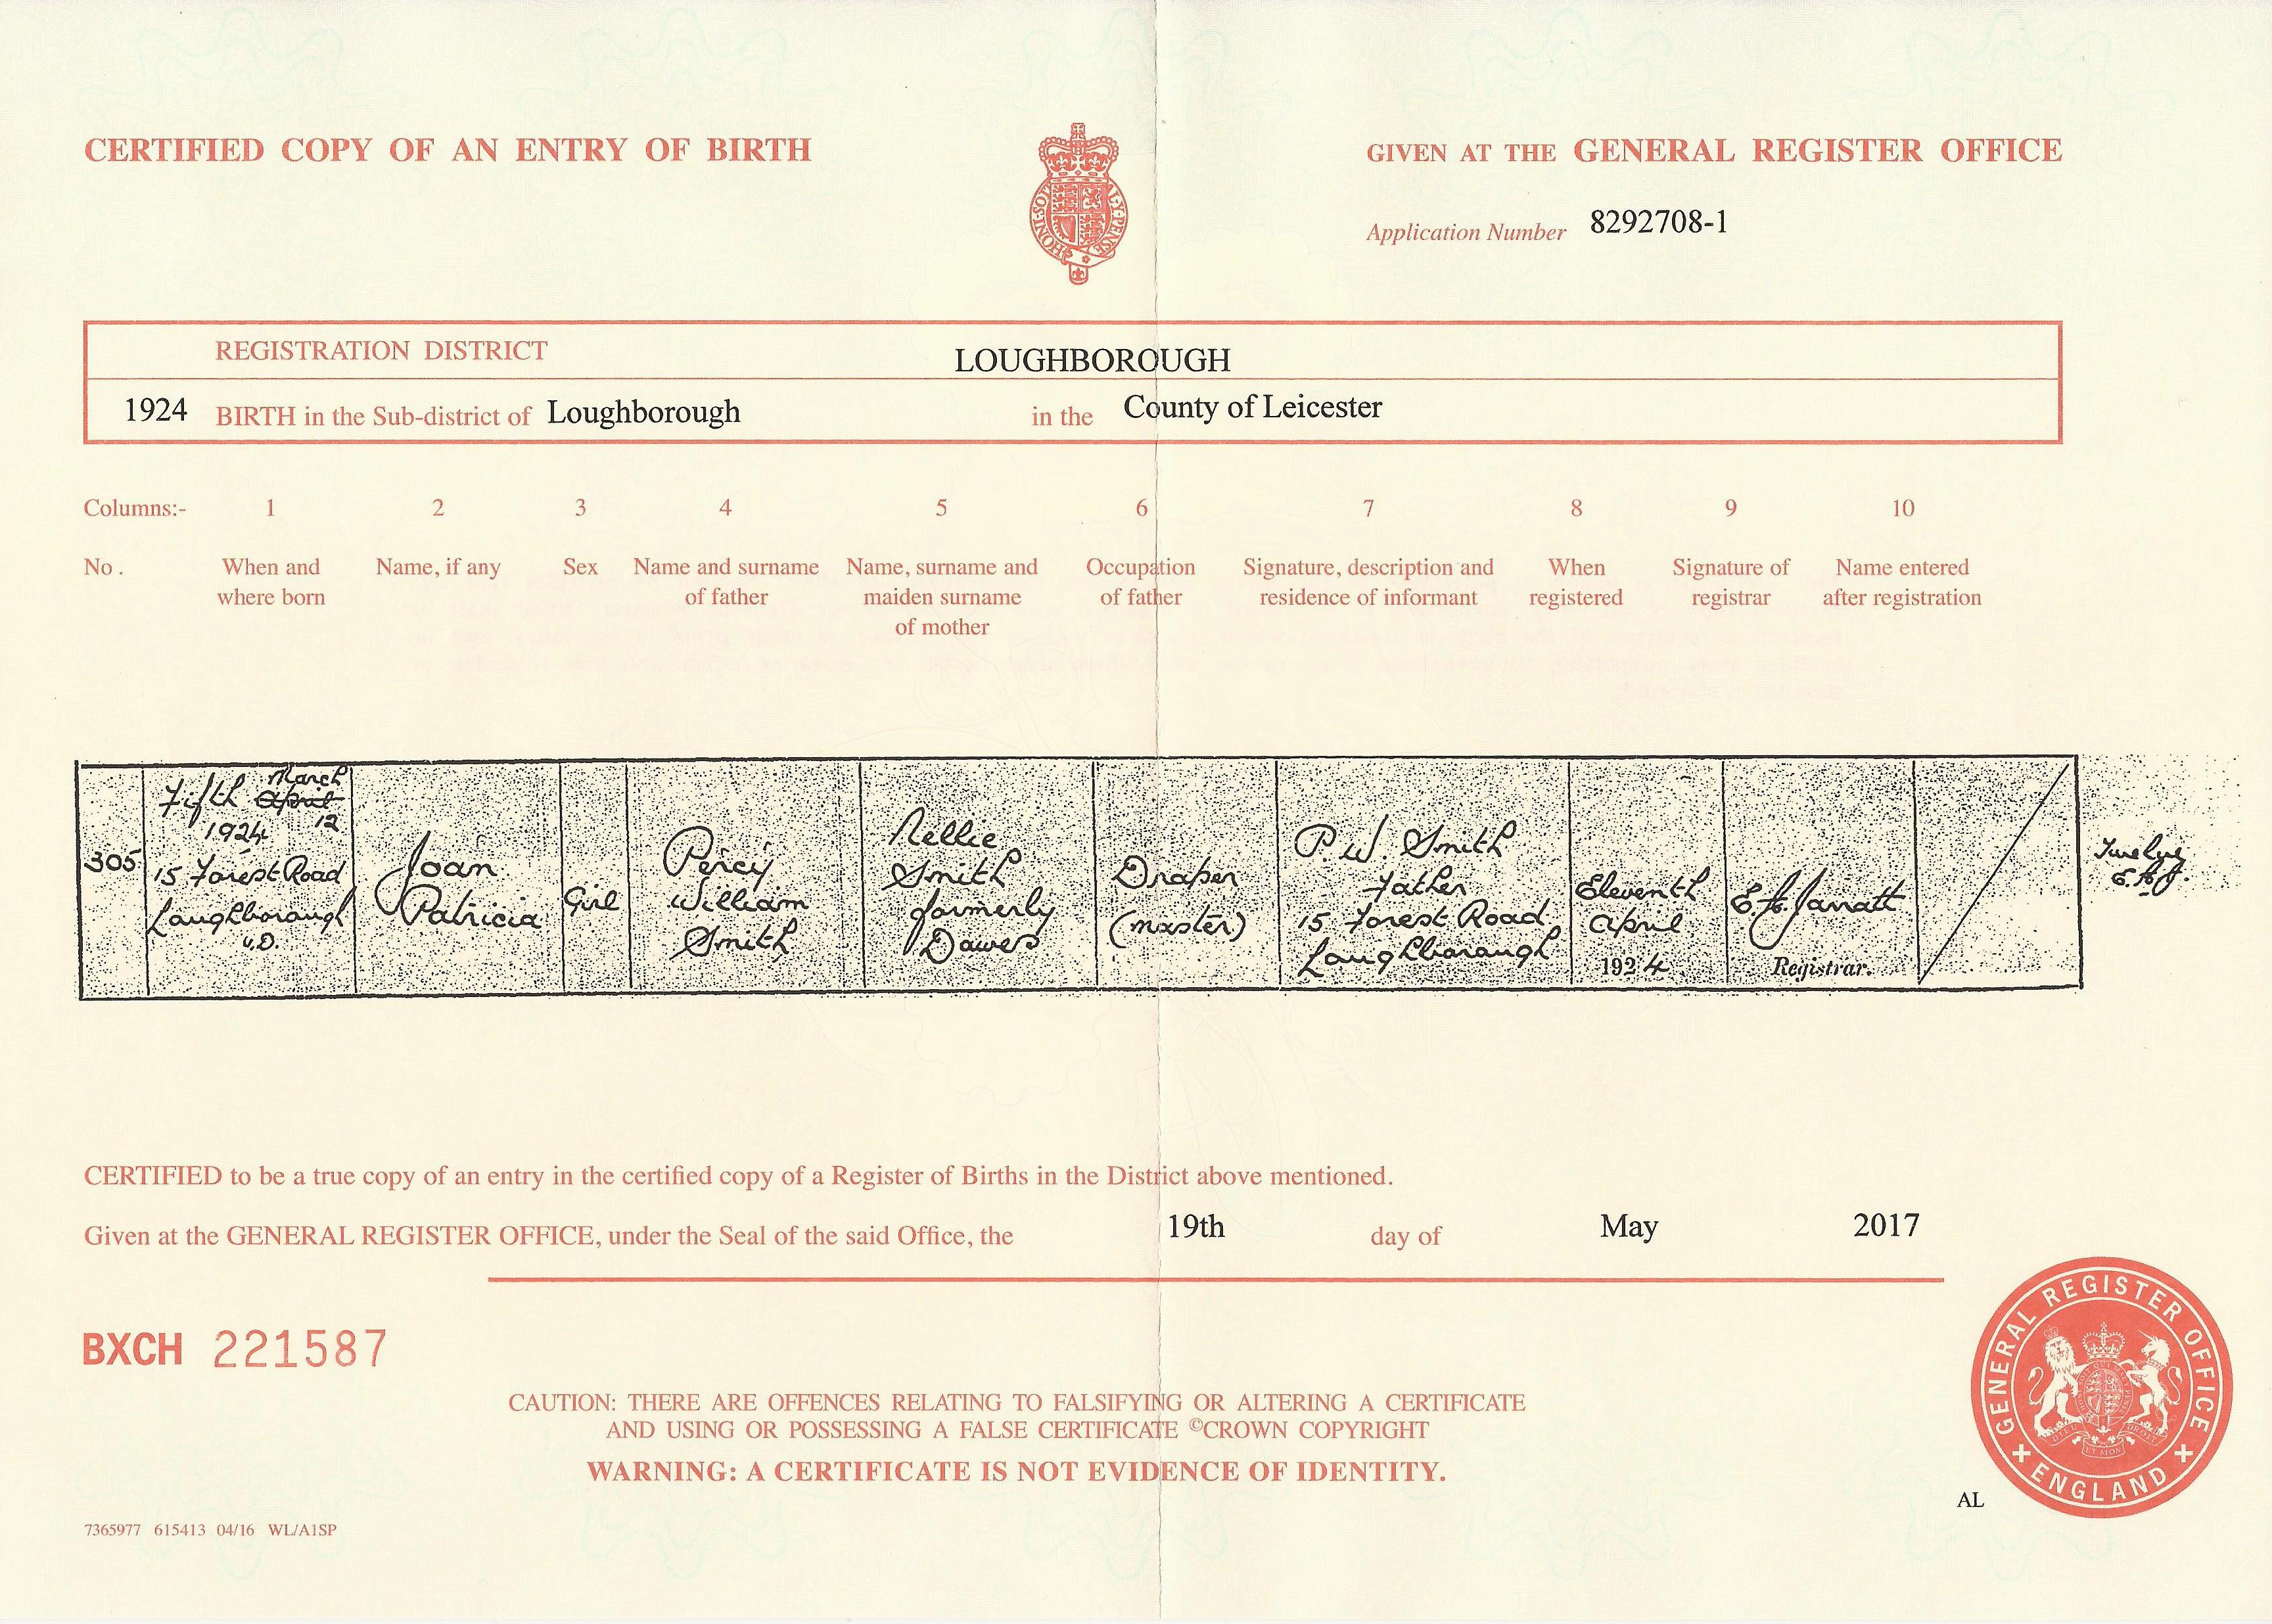 CERTIFIED COPY OF AN ENTRY OF BIRTH
GIVEN AT THE GENERAL REGISTER OFFICE
HONI·SOIT Y·PENSE
Application Number 8292708-1
REGISTRATION DISTRICT LOUGHBOROUGH
1924 BIRTH in the Sub-district of Loughborough in the County of Leicester
Columns:- 1 2 3 4 5 6 7 8 9 10
No. When and where born
Name, if any
Sex
Name and surname of father
Name, surname and maiden surname of mother
Occupation of father
Signature, description and residence of informant
When registered
Signature of registrar
Name entered after registration
305
March
Fifth April
12
1924
15 Forest Road
Loughborough
U.D.
Joan
Patricia
Girl
Percy
William
Smith
Nellie
Smith
formerly
Dawes
Draper
(master)
P. W. Smith
Father
15 Forest Road
Loughborough
Eleventh
April
1924
E. H. Jarratt
Registrar.
Twelve
E.H.J.
CERTIFIED to be a true copy of an entry in the certified copy of a Register of Births in the District above mentioned.
Given at the GENERAL REGISTER OFFICE, under the Seal of the said Office, the 19th day of May 2017
BXCH 221587
CAUTION: THERE ARE OFFENCES RELATING TO FALSIFYING OR ALTERING A CERTIFICATE
AND USING OR POSSESSING A FALSE CERTIFICATE ©CROWN COPYRIGHT
WARNING: A CERTIFICATE IS NOT EVIDENCE OF IDENTITY.
GENERAL REGISTER OFFICE
ENGLAND
AL
7365977 615413 04/16 WL/A1SP